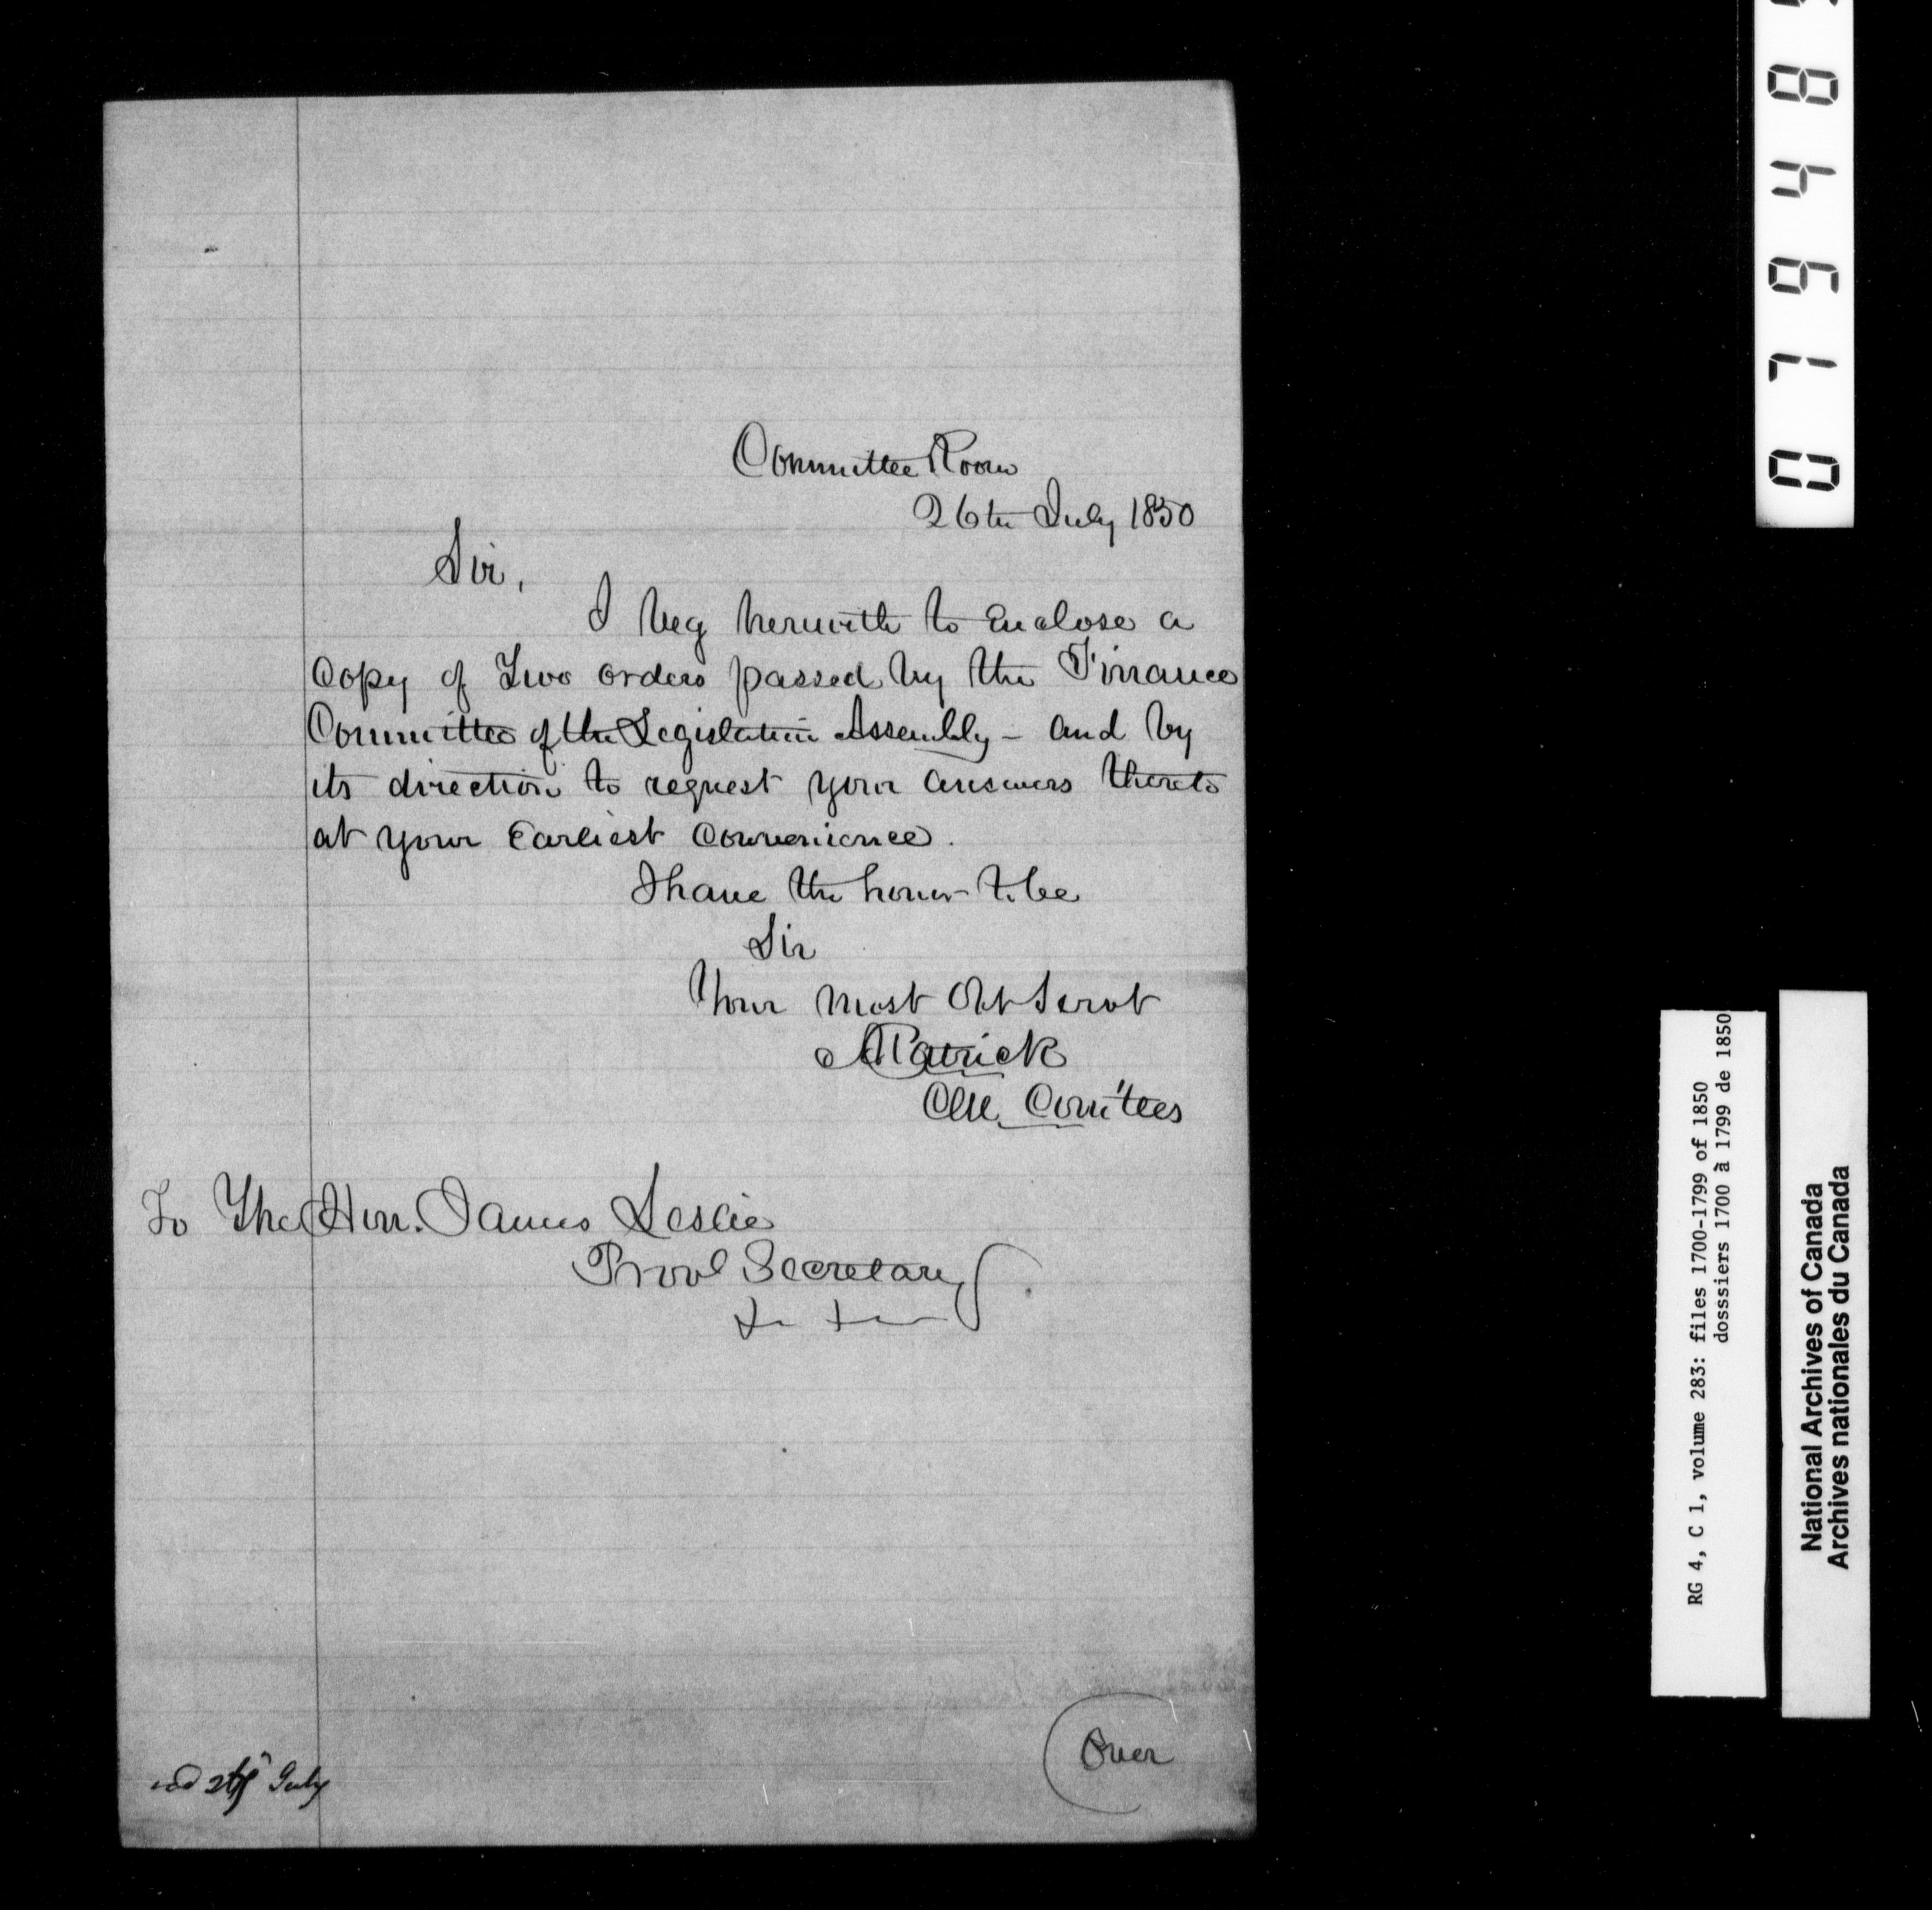 Committee Room
26th July 1850
Sir,
I beg herewith to Enclose a
Copy of Two orders passed by the Finance
Committee of the Legislative Assembly – and by
its direction to request your answers thereto
at your Earliest Convenience.
I have the honor to be
Sir
Your most Obt Servt
A Patrick
Clk Com'tees
To The Hon. James Leslie
Provl Secretary
July
Over
RG 4, C 1, volume 283: files 1700-1799 of 1850
dosssiers 1700 à 1799 de 1850
National Archives of Canada
Archives nationales du Canada